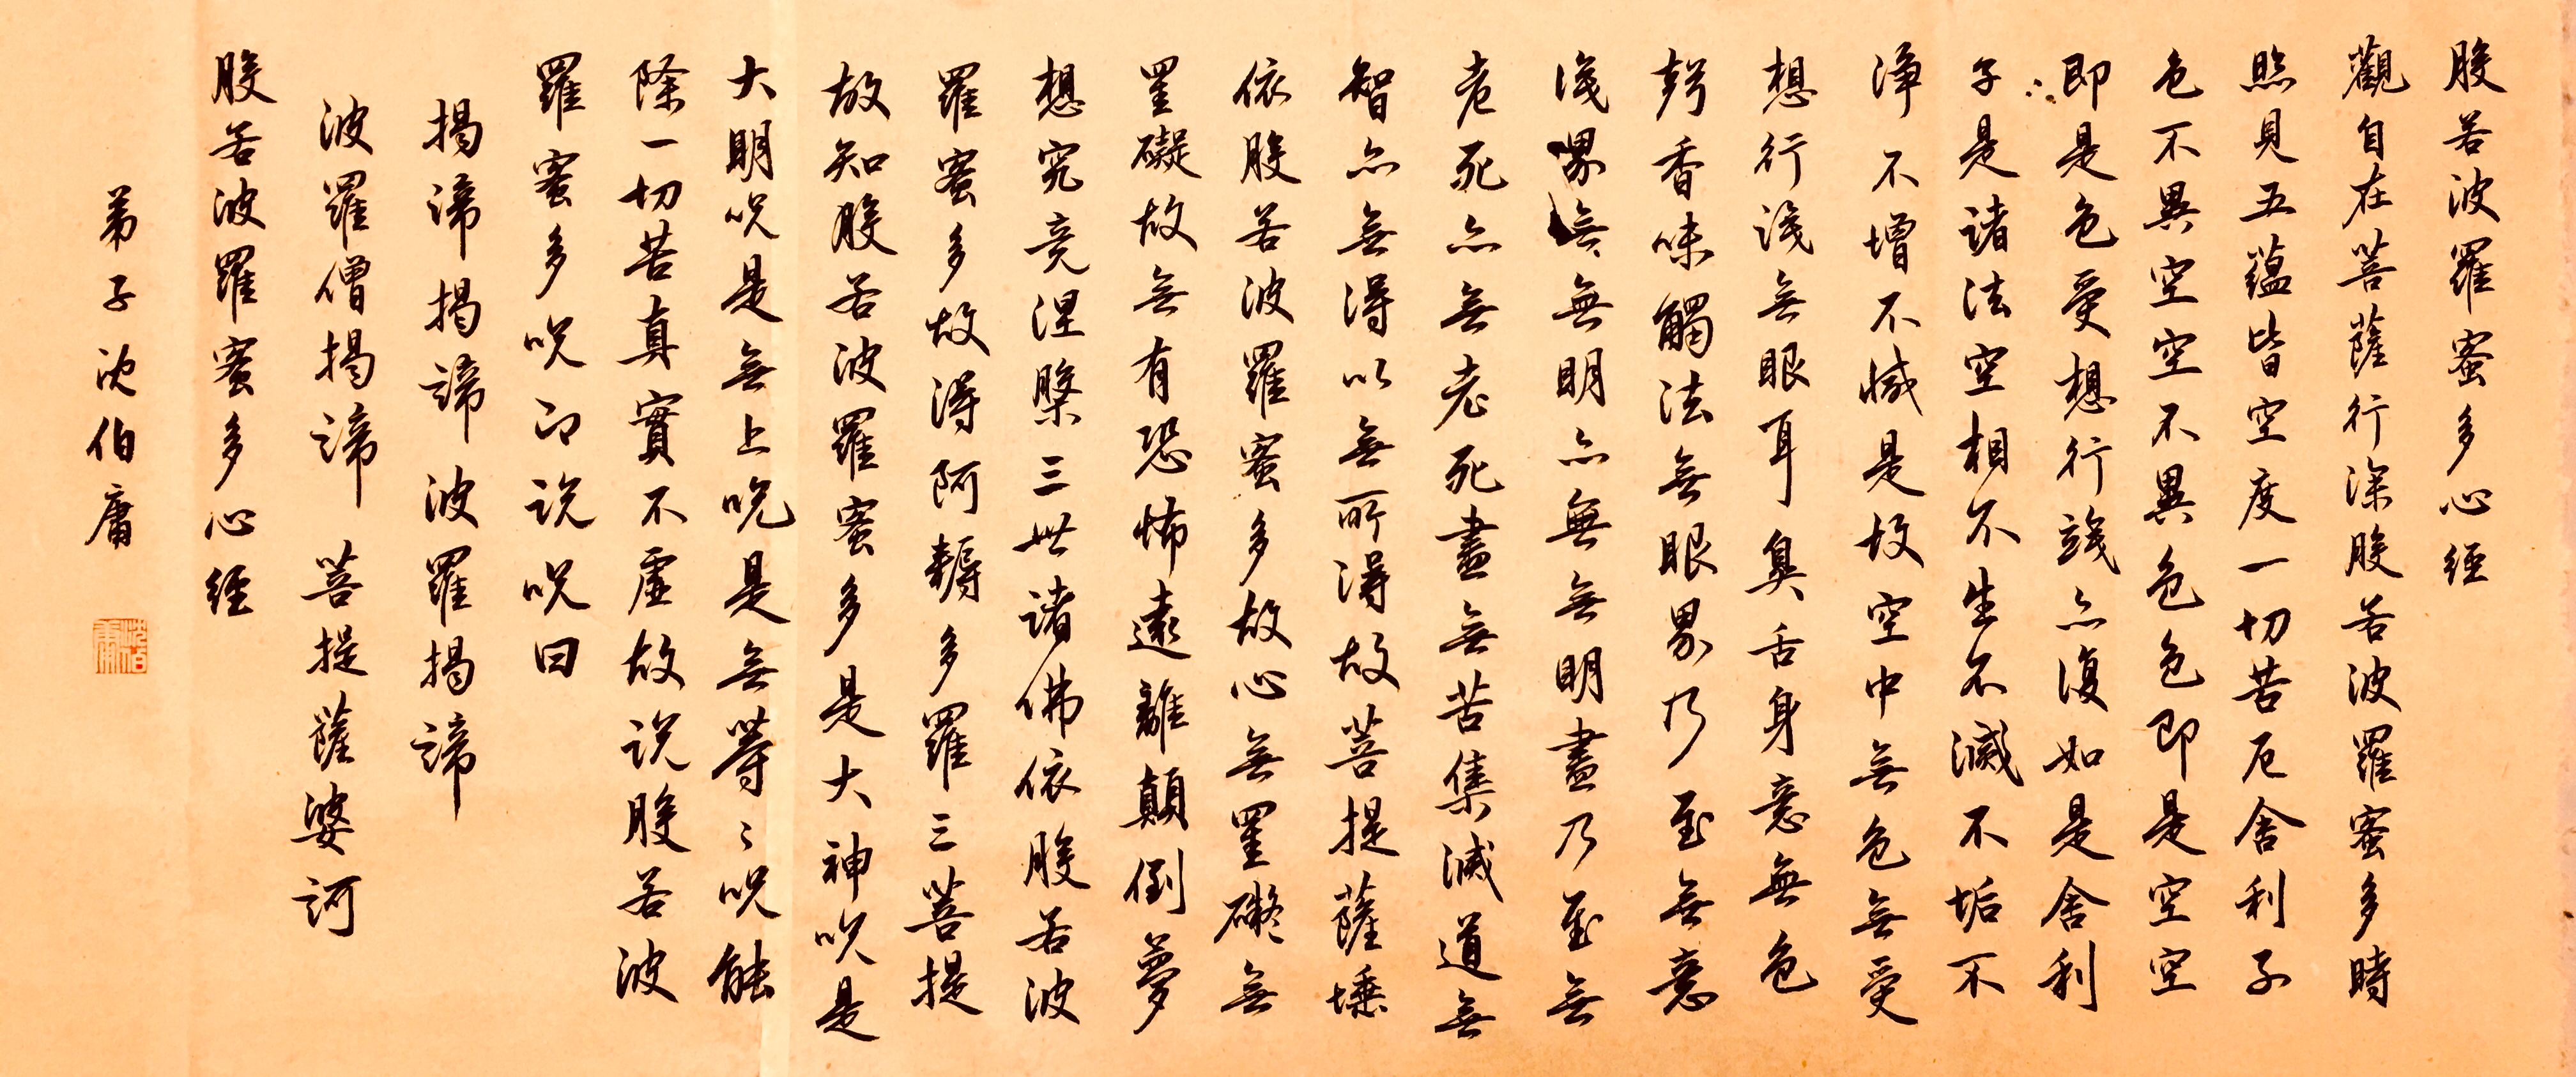 般若波羅蜜多心經
觀自在菩薩行深般若波羅蜜多時
照見五蘊皆空度一切苦厄舍利子
色不異空空不異色色即是空空
即是色受想行識亦復如是舍利
子是諸法空相不生不滅不垢不
淨不增不減是故空中無色無受
想行識無眼耳鼻舌身意無色
聲香味觸法無眼界乃至無意
識界無無明亦無無明盡乃至無
老死亦無老死盡無苦集滅道無
智亦無得以無所得故菩提薩埵
依般若波羅蜜多故心無罣礙無
罣礙故無有恐怖遠離顛倒夢
想究竟涅槃三世諸佛依般若波
羅蜜多故得阿耨多羅三菩提
故知般若波羅蜜多是大神咒是
大明咒是無上咒是無等〻咒能
除一切苦真實不虛故說般若波
羅蜜多咒即說咒曰
揭諦揭諦 波羅揭諦
波羅僧揭諦 菩提薩婆訶
般若波羅蜜多心經
弟子沈伯庸
沈伯庸